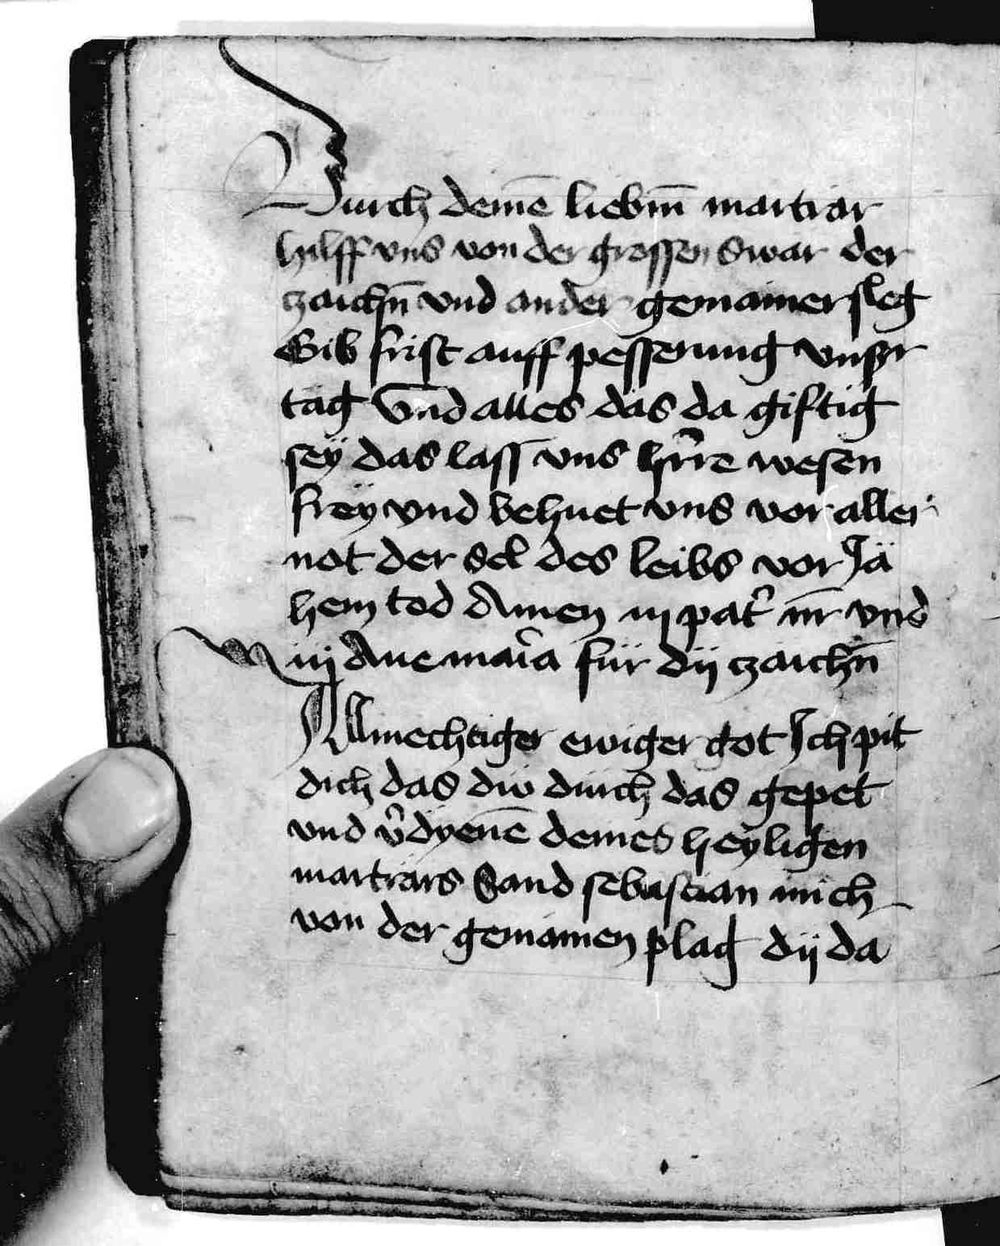 Durch deinē liebm̄ martrar
hilff vns von der grossen swar der
czaichn̄ vnd ander gemainer sleg
Gib frist auff pesserung vnsr
tag Vnd alles das da giftig
sey das lass vns hr̄re wesen
freÿ vnd behuet vns vor aller
not der sel des leibs vor Jä
hem tod Amen iij pat̄r nr̄ vnd
iij Aue mar̄ia für dij czaichn̄
Allmechtiger ewiger got Ich pit
dich das dw durch das gepet
vnd v̄dyenē deines heyligen
marträrs Sand sebastian mich
von der gemainen plag dij da